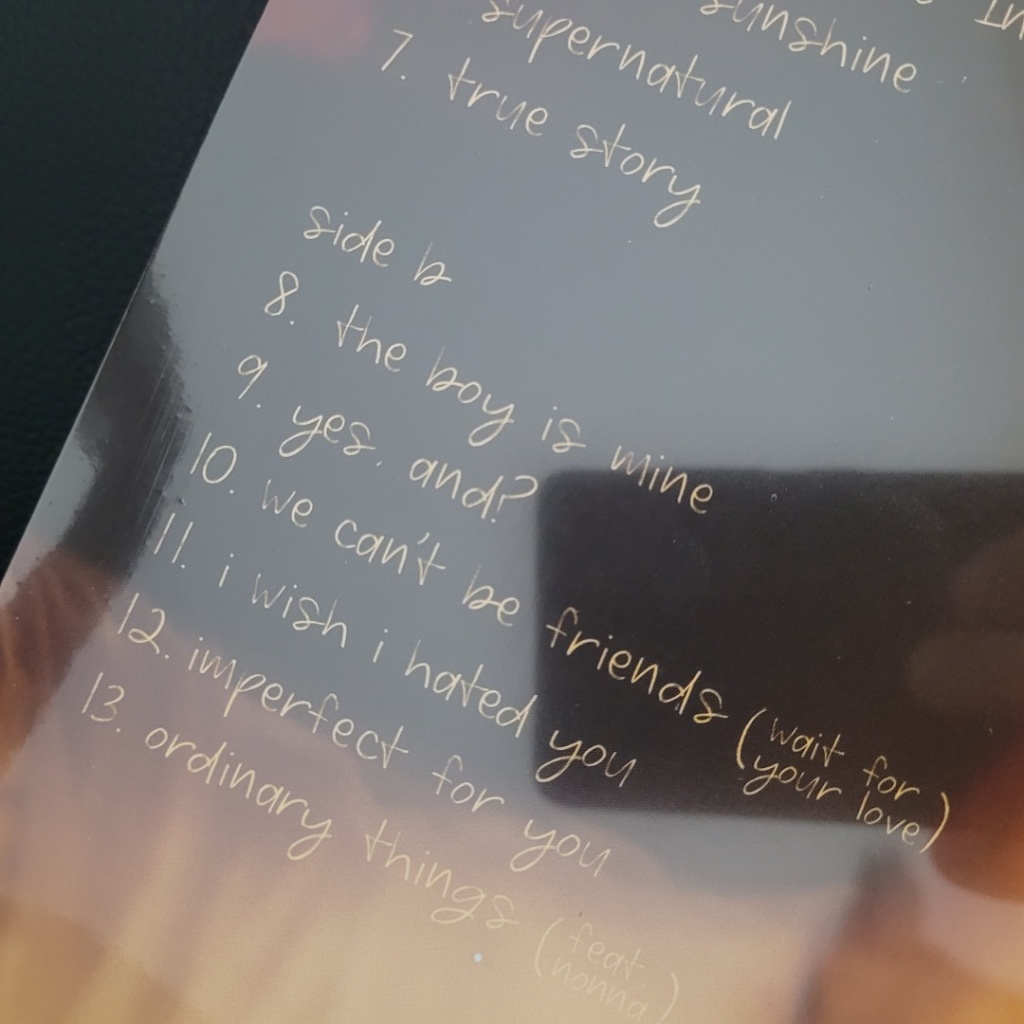 In
sunshine
supernatural
7. true story
side b
8. the boy is mine
9. yes, and?
10. we can't be friends (wait for
your love)
11. i wish i hated you
12. imperfect for you
13. ordinary things (feat.
nonna)